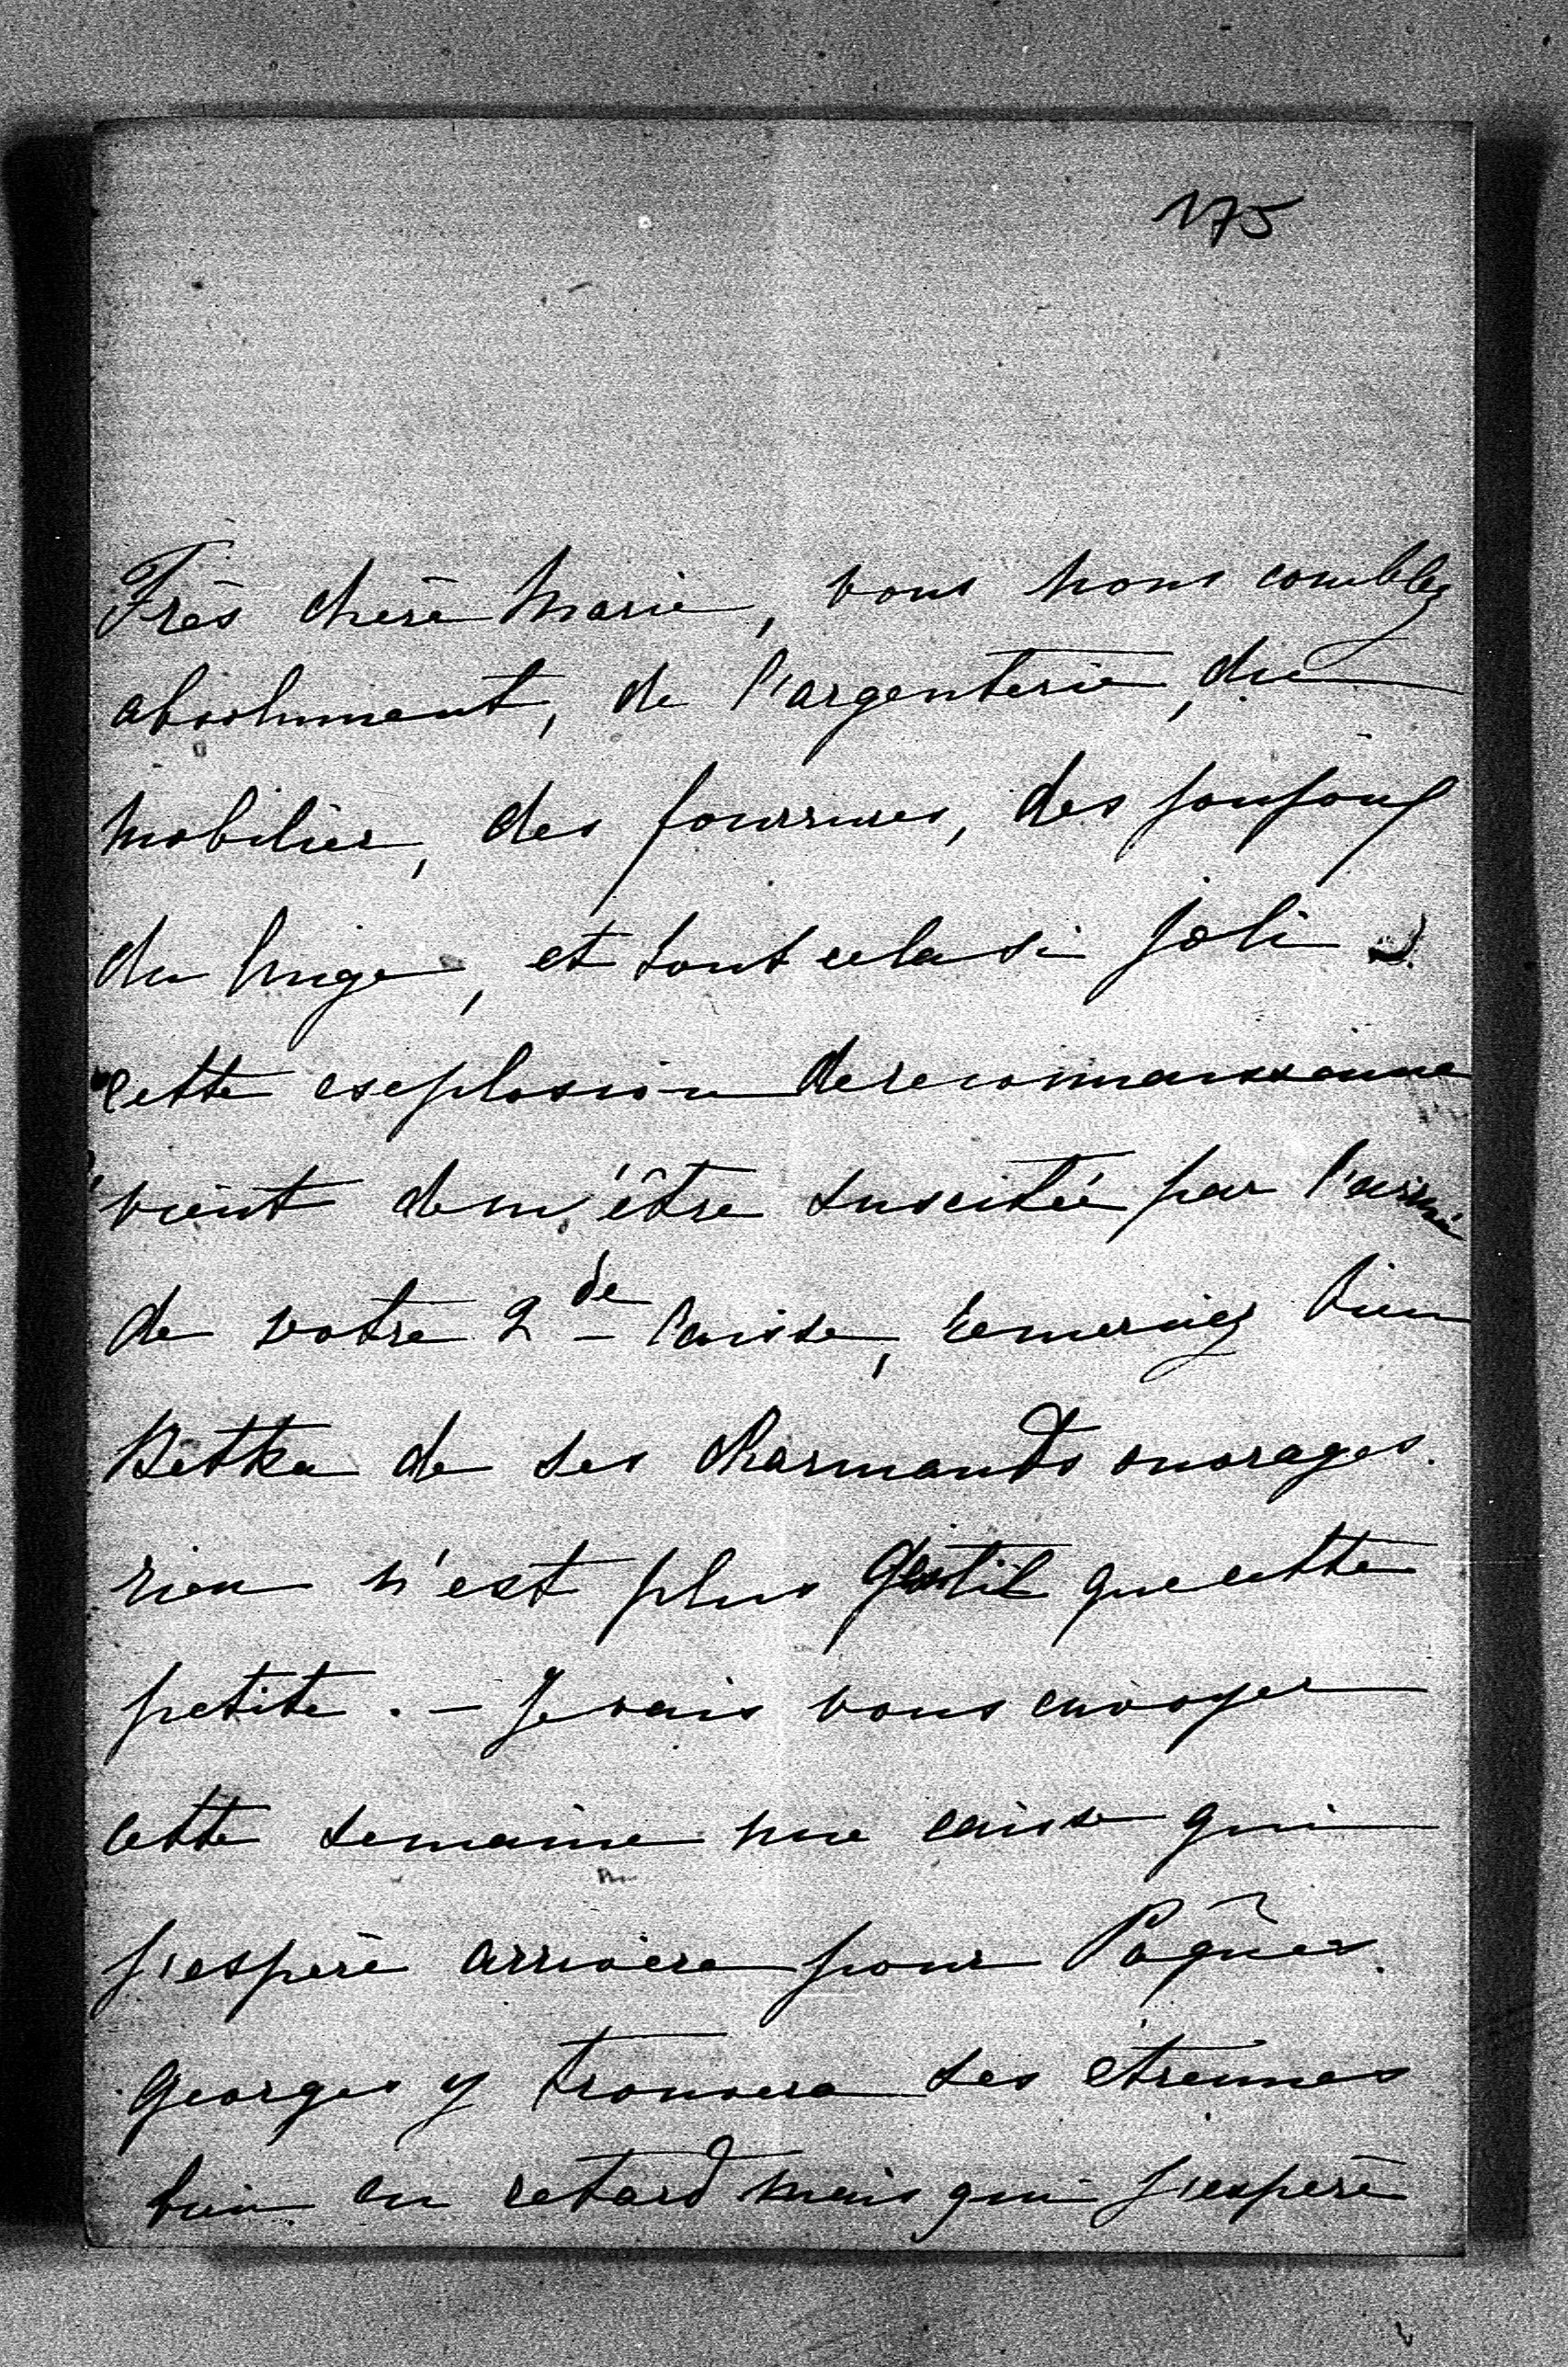 175
Très chère Marie, vous nous comblez
absolument, de l'argenterie, du
mobilier, des fourrures, des joujoux
du linge, et tout cela si joli
cette explosion de reconnaissance
vient de m'être suscitée par l'arrivée
de votre 2de caisse, remerciez bien
Betka de ses charmants ouvrages.
rien n'est plus gentil que cette
petite. - Je vais vous envoyer
cette semaine une caisse qui
j'espère arrivera pour Pâques.
Georges y trouvera ses étrennes
bien en retard mais qui j'espère